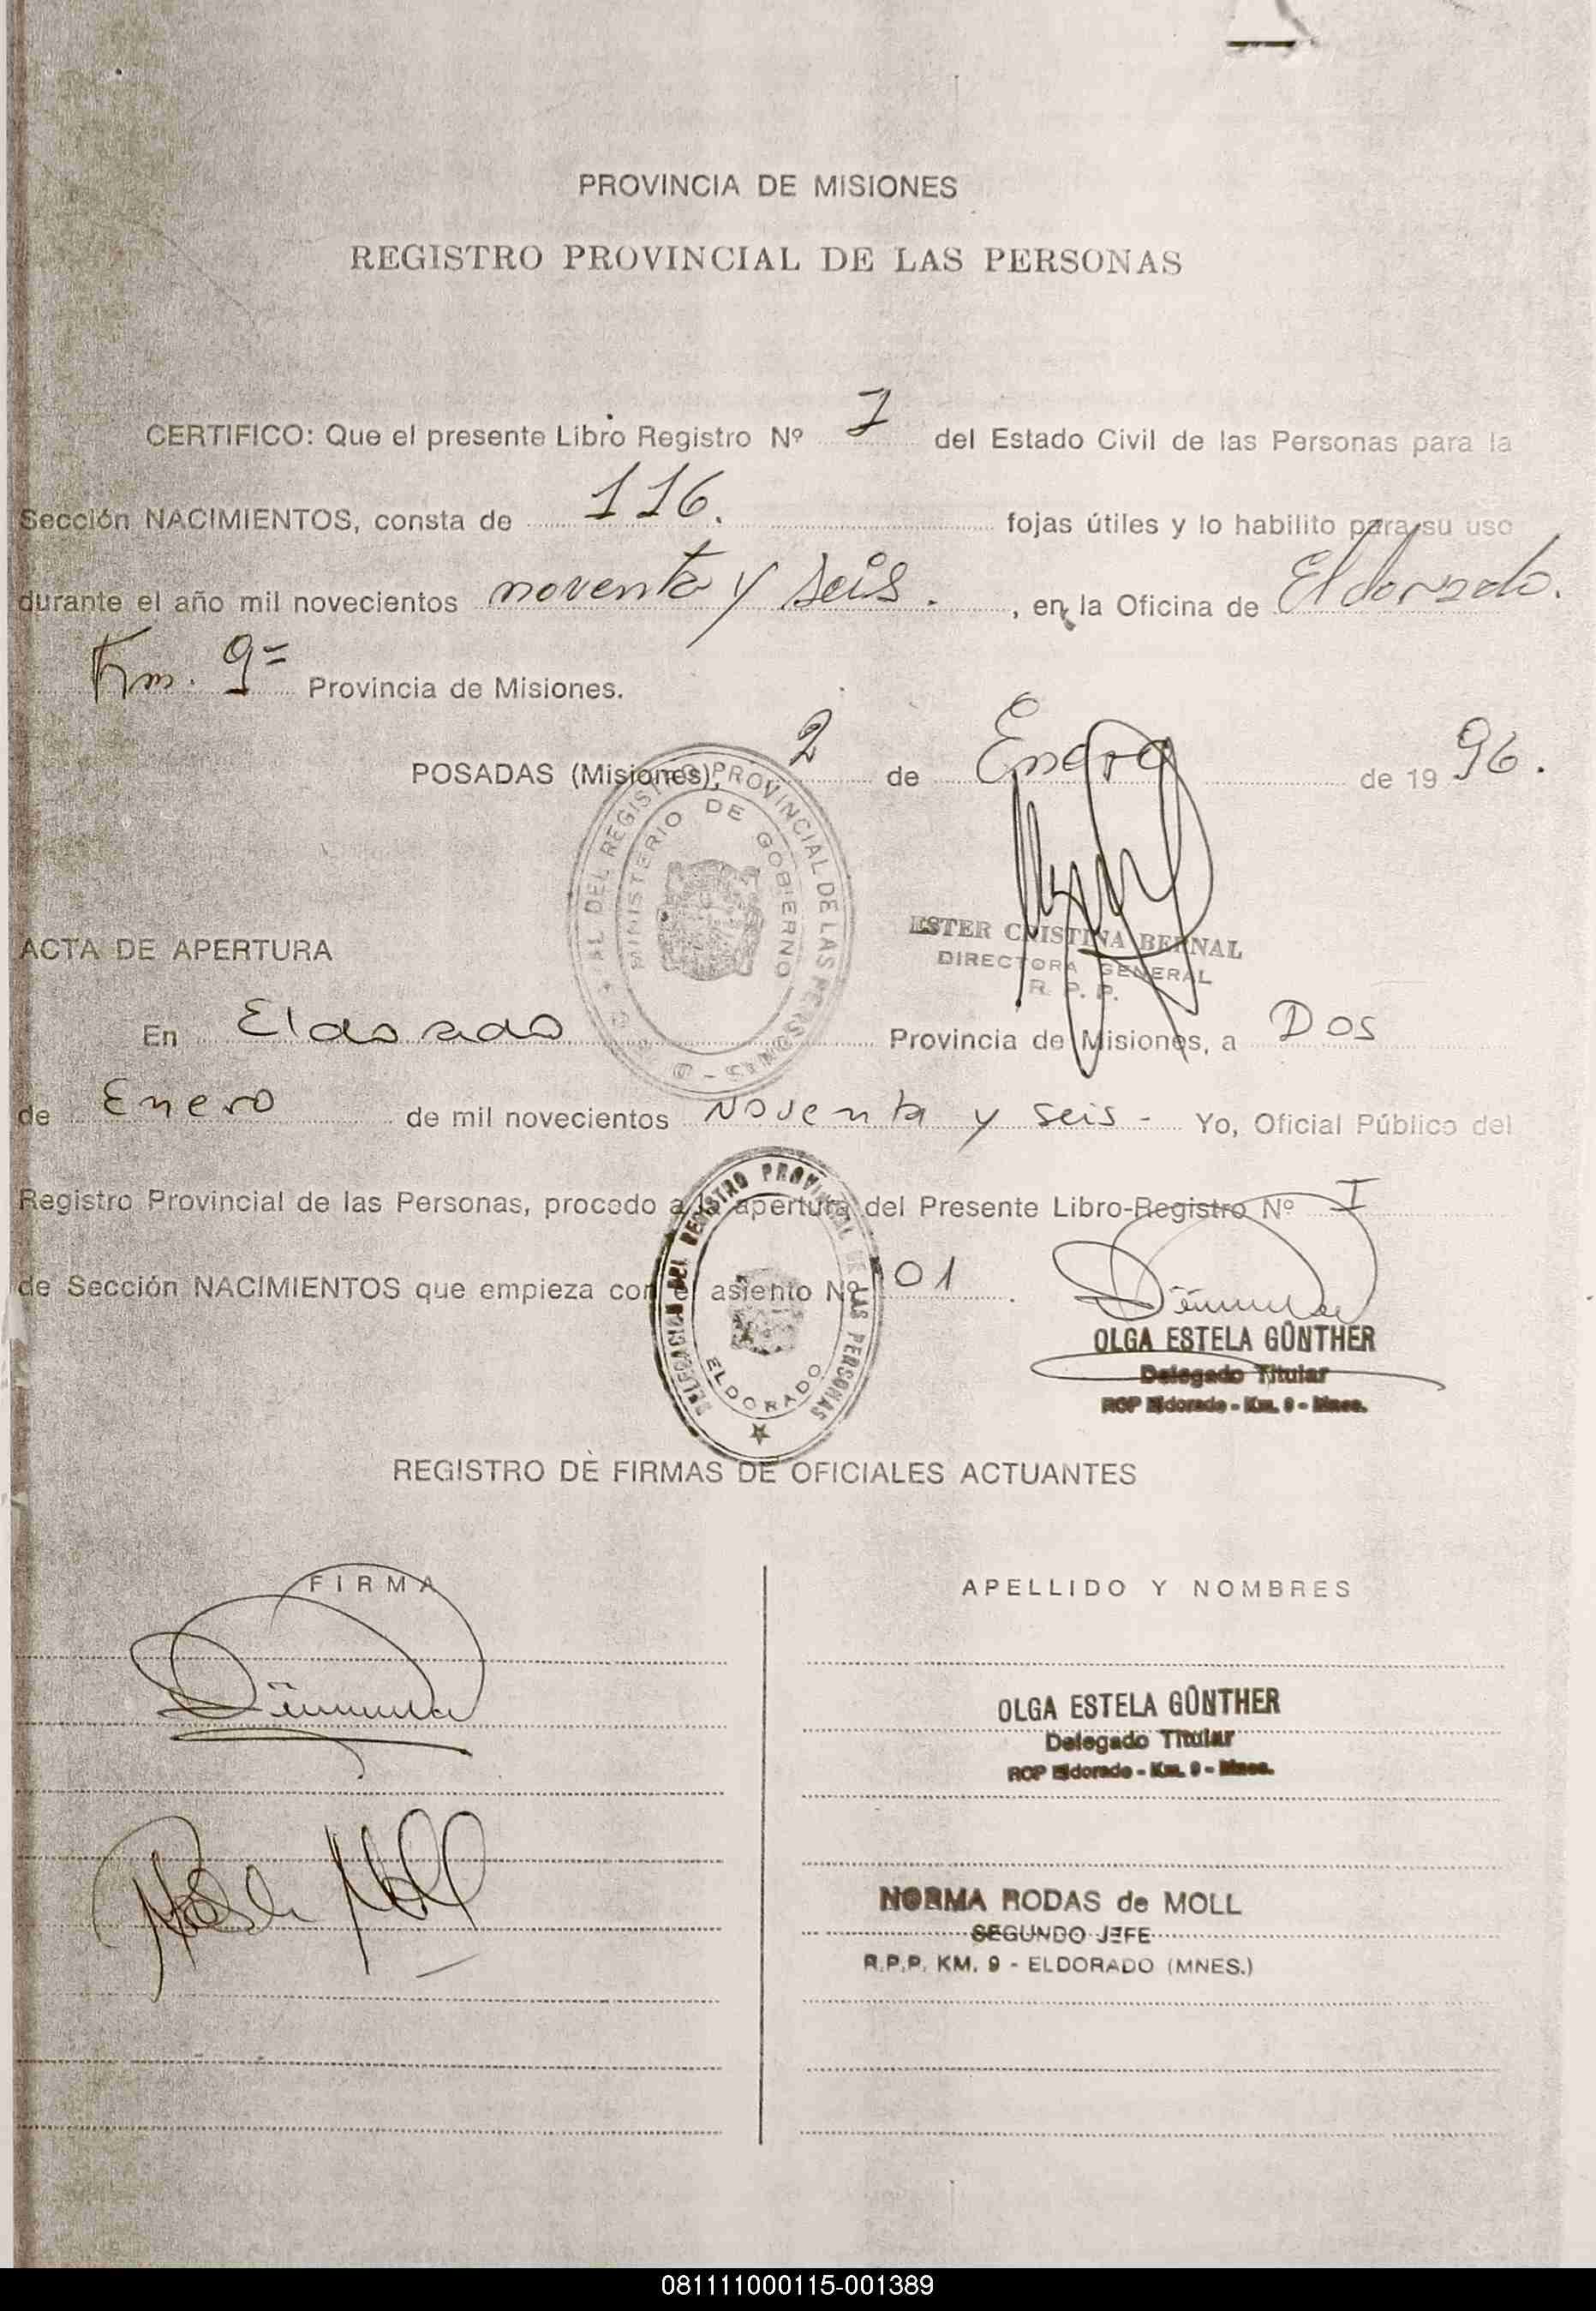 PROVINCIA DE MISIONES
REGISTRO PROVINCIAL DE LAS PERSONAS
CERTIFICO: Que el presente Libro Registro Nº I del Estado Civil de las Personas para la
Sección NACIMIENTOS, consta de 116. fojas útiles y lo habilito para su uso
durante el año mil novecientos noventa y seis. , en la Oficina de Eldorado.
Km. 9= Provincia de Misiones.
POSADAS (Misiones), 2 de Enero de 19 96.
REGISTRO PROVINCIAL DE LAS PERSONAS
MINISTERIO DE GOBIERNO
ESTER CRISTINA BERNAL
DIRECTORA GENERAL
R. P. P.
ACTA DE APERTURA
En Eldorado Provincia de Misiones, a Dos
de Enero de mil novecientos Noventa y seis - Yo, Oficial Público del
Registro Provincial de las Personas, procedo a la apertura del Presente Libro-Registro Nº I
de Sección NACIMIENTOS que empieza con el asiento Nº 01 .
DELEGACION DEL REGISTRO PROVINCIAL DE LAS PERSONAS
ELDORADO
OLGA ESTELA GÜNTHER
Delegado Titular
RCP Eldorado - Km. 9 - Mnes.
REGISTRO DE FIRMAS DE OFICIALES ACTUANTES
FIRMA APELLIDO Y NOMBRES
OLGA ESTELA GÜNTHER
Delegado Titular
RCP Eldorado - Km. 9 - Mnes.
Moll
NORMA RODAS de MOLL
SEGUNDO JEFE
R.P.P. KM. 9 - ELDORADO (MNES.)
081111000115-001389